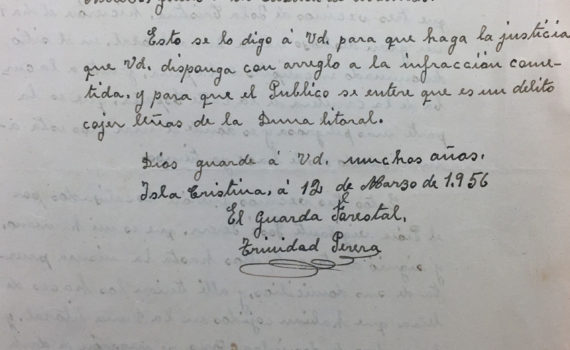 Esto se lo digo á Vd. para que haga la justicia
que Vd. disponga con arreglo a la infracción come-
tida. y para que el Publico se entere que es un delito
cojer leñas de la Duna litoral.
Dios guarde á Vd. muchos años.
Isla Cristina, á 12 de Marzo de 1.956
El Guarda Forestal,
Trinidad Perera